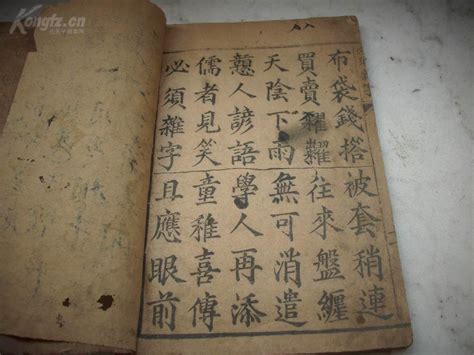 Kongfz.cn
孔夫子旧书网
布袋錢搭被套稍連
買賣往來盤纏
天陰下雨無可消遣
人諺語學人再添
儒者見笑童稚喜傳
必須雜字且應眼前